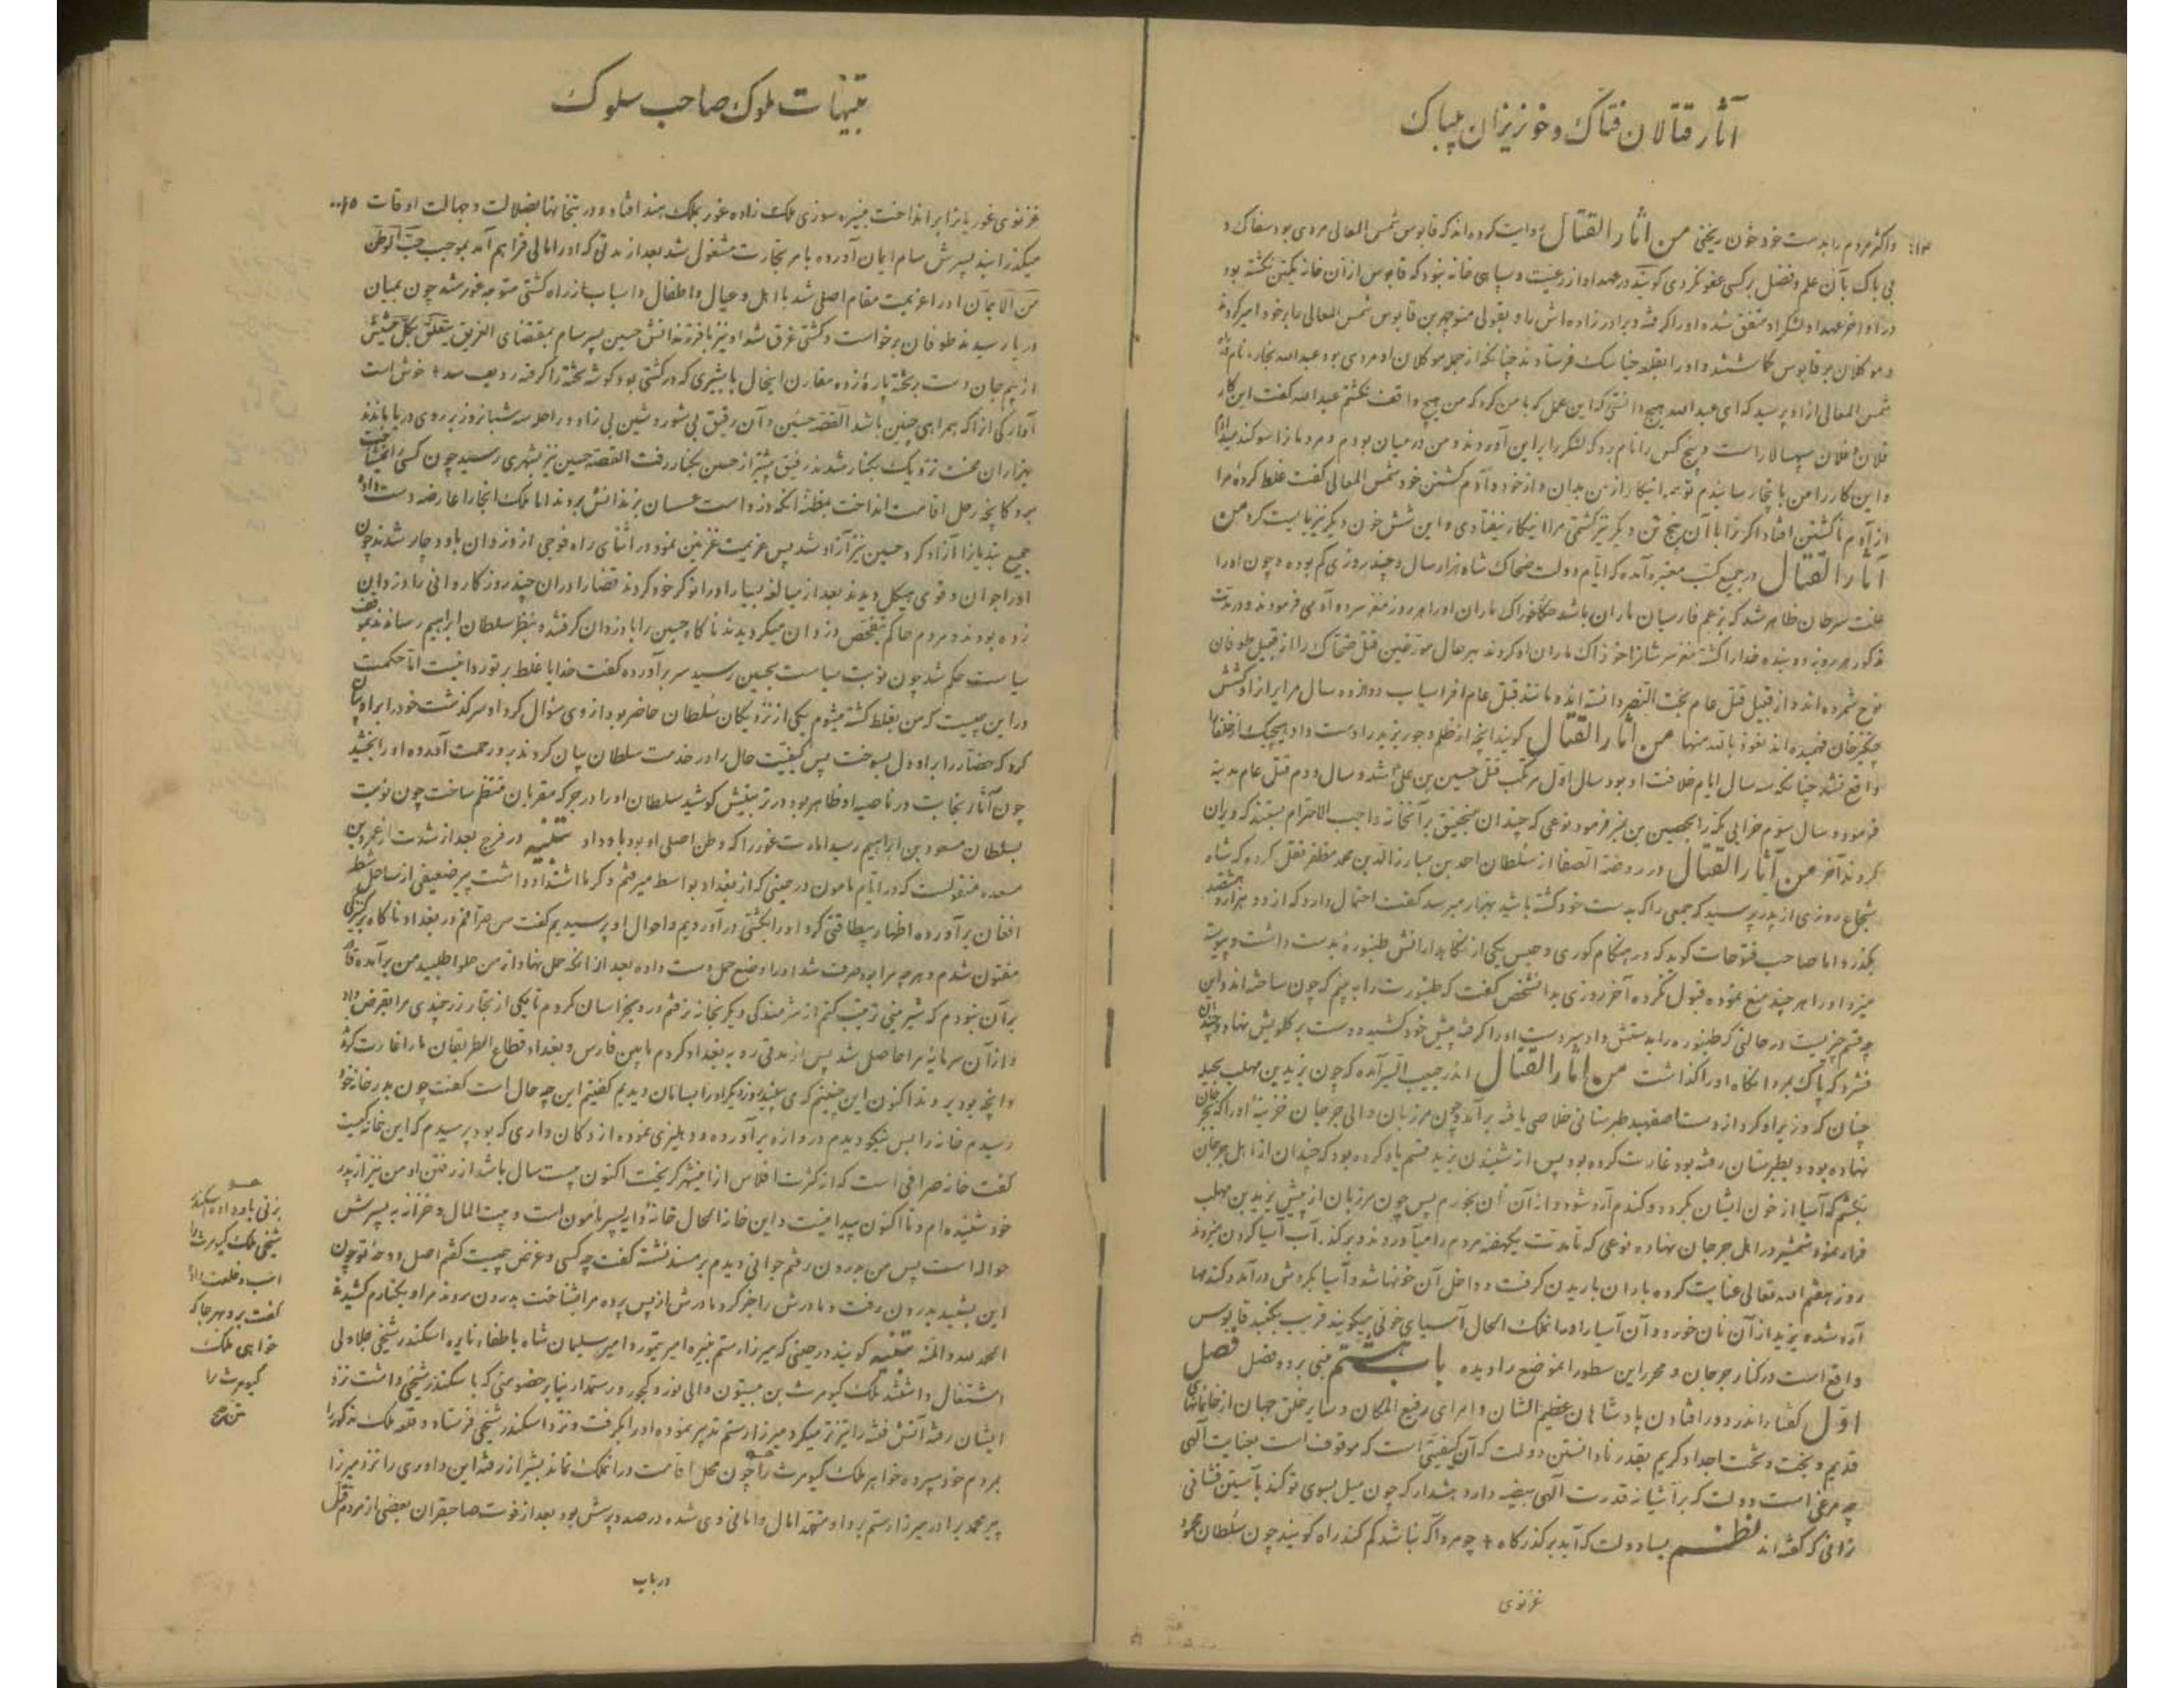 آثار قتالان فتاک و خونریزان بیباک
و اکثر مردم را بدست خود خون ریختی من آثار القتال روایت کرده اند که قابوس شمس المعالی مردی بود سفاک و
بی باک بآن علم و فضل بر کسی عفو نکردی گویند در عهد او از رعیت و سپاهی خانه نبود که قابوس از آن خانه یکتن نکشته بود
در اواخر عهد او لشکر او متفق شده او را گرفته و برادر زاده اش را و بقولی منوچهر بن قابوس شمس المعالی را بر خود امیر کردند
و موکلان بر قابوس گماشتند و او را بقلعه جناشک فرستادند چنانکه از جمله موکلان او مردی بود عبد الله نام
شمس المعالی از او پرسید که ای عبد الله هیچ دانستی که این عمل که با من کرد که من هیچ واقف نگشتم عبد الله گفت این کار
فلان و فلان سپهسالار است و پنج کس را نام برد که لشکر را بر این آوردند و من در میان بودم و مردمانرا سوگند میدادم
و این کار را من باینجا رسانیدم تو همه اینکار از من بدان و از خود و آدم کشتن خود شمس المعالی گفت غلط کرده مرا
از آدم ناکشتن افتاد اگر ترا با آن پنج تن دیگر نیز کشتمی مرا اینکار نیفتادی و این شش خون دیگر نیز بایست کرد من
آثار القتال در جمیع کتب معتبره آمده که ایام دولت ضحاک شاه هزار سال و چند روزی کم بوده و چون او را
علت سرطان ظاهر شد که بزعم فارسیان ماران باشد خوراک ماران او را هر روز مغز سر دو آدمی فرمودند و در مدت
مذکور هر روز دو بنده خدا را کشته مغز سر شانرا خوراک ماران او کردند بهر حال مورخین قتل ضحاک را از قبیل طوفان
نوح شمرده اند و از قبیل قتل عام بخت النصر دانسته اند و مانند قتل عام افراسیاب دوازده سال مر ایرانرا و کشش
چنگیزخان فهمیده اند نعوذ بالله منها من آثار القتال گویند آنچه از ظلم و جور یزید را دست داد هیچیک از خلفا را
واقع نشد چنانکه سه سال ایام خلافت او بود سال اول مرتکب قتل حسین بن علی شد و سال دوم قتل عام مدینه
فرمود و سال سوم خرابی مکه را بحصین بن نمیر فرمود نوعی که چندان منجنیق بر آنخانه واجب الاحترام بستند که ویران
کردند آخر من آثار القتال در روضة الصفا از سلطان احمد بن مبارز الدین محمد مظفر نقل کرده که شاه
شجاع روزی از پدر پرسید که جمعی را که بدست خود کشته باشید بهزار میرسد گفت احتمال دارد که از دو هزار و هشتصد
بگذرد اما صاحب فتوحات گوید که در هنگام کوری و حبس یکی از نگاهدارانش طنبوره بدست داشت و پیوسته
میزد او را هر چند منع نموده قبول نکرده آخر روزی بدانشخص گفت که طنبورت را به بینم که چون ساخته اند و این
چه قسم چیزیست در حالتی که طنبوره را بدستش داد سر دست او را گرفته پیش خود کشید و دست بر گلویش نهاد و چندان
فشرد که پاک بمرد آنگاه او را گذاشت من آثار القتال اندر حبیب السیر آمده که چون یزید بن مهلب بحیله
چنان که وزیر او کرد از دست اصفهبد طبرستانی خلاصی یافته بر آمد و چون مرزبان والی جرجان خزینه او را که بجرجان
نهاده بود و بطبرستان رفته بود غارت کرده بود پس از شنیدن یزید قسم یاد کرده بود که چندان از اهل جرجان
بکشم که آسیا از خون ایشان بگردد و گندم آرد شود و از آن نان بخورم پس چون مرزبان از پیش یزید بن مهلب
فرار نمود شمشیر در اهل جرجان نهاده نوعی که تا مدت یکهفته مردم را میآوردند و بر گذر آب آسیا گردن میزدند
روز هفتم الله تعالی عنایت کرده باران باریدن گرفت و داخل آن خونها شد و آسیا بگردش درآمد و گندمها
آرد شده یزید از آن نان خورد و آن آسیا را در آنملک الحال آسیای خونی میگویند قریب بگنبد قابوس
واقع است در کنار جرجان و محرر این سطور آنموضع را دیده باب هشتم مبنی بر دو فصل فصل
اول گفتار اندر دور افتادن پادشاهان عظیم الشان و امرای رفیع المکان و سایر خلق جهان از خانمانهای
قدیم و بخت و تخت اجداد کریم بقدر نادانستن دولت که آن کیفیتی است که موقوف است بعنایت آلهی
چه مرغی است دولت که بر آشیانه قدرت آلهی بیضه دارد هشدار که چون میل بسوی تو کند بآستین فشانی
نرانی که گفته اند نظم بسا دولت که آید بر گذرگاه + چو مرد آگه نباشد گم کند راه گویند چون سلطان محمود
غزنوی
تنبیهات ملوک صاحب سلوک
غزنوی غوریانرا بر انداخت نبیره سوری ملک زاده غور بملک هند افتاد و در بتخانها بضلالت و جهالت اوقات
میگذرانید پسرش سام ایمان آورده بامر تجارت مشغول شد بعد از مدتی که او را مالی فراهم آمد بموجب حب الوطن
من الایمان او را عزیمت مقام اصلی شد با اهل و عیال و اطفال و اسباب از راه کشتی متوجه غور شد چون بمیان
دریا رسیدند طوفان برخواست و کشتی غرق شد او نیز با فرزندانش حسین پسر سام بمقتضای الغریق یتعلق بکل حشیش
از بیم جان دست بر تخته پاره زده مقارن اینحال ببری که در کشتی بود گوشه تخته را گرفته ردیف شد + خوش است
آوارگی آنرا که همراهی چنین باشد القصه حسین و آن رفیق بی شور و شین بی زاد و راحله سه شبانروز بر روی دریا ماندند
بهزاران محنت نزدیک بکنار شدند رفیق پیشتر از حسین بکنار رفت القصه حسین نیز بشهری رسید چون کسی را نمیشناخت
بر دکانچه رحل اقامت انداخت بمظنه آنکه دزد است عسسان بزندانش بردند اما ملک آنجا را عارضه دست داده
جمیع بندیانرا آزاد کرد حسین نیز آزاد شد پس عزیمت غزنین نمود در اثنای راه فوجی از دزدان باو دچار شدند چون
او را جوان و قوی هیکل دیدند بعد از مبالغه بسیار او را نوکر خود کردند قضا را در آن چند روز کاروانی را دزدان
زده بودند و مردم حاکم بتفحص دزدان میگردیدند ناگاه حسین را با دزدان گرفته بنظر سلطان ابراهیم رساندند
سیاست حکم شد چون نوبت سیاست بحسین رسید سر برآورده گفت خدایا غلط بر تو روا نیست اما حکمت
در این چیست که من بغلط کشته میشوم یکی از نزدیکان سلطان حاضر بود از وی سؤال کرد او سرگذشت خود را بر او بیان
کرد که حضار را بر او دل بسوخت پس کیفیت حال را در خدمت سلطان بیان کردند بر او رحمت آمده او را بخشید
چون آثار نجابت در ناصیه او ظاهر بود در تربیتش کوشید سلطان او را در جرگه مقربان منتظم ساخت چون نوبت
بسلطان مسعود بن ابراهیم رسید امارت غور را که وطن اصلی او بود باو داد تنبیه در فرج بعد از شدت از عمرو بن
مسعده منقولست که در ایام مامون در حینی که از بغداد بواسط میرفتم و گرما اشتداد داشت پیر ضعیفی از ساحل شط
افغان برآورده اظهار بیطاقتی کرد او را بکشتی درآوردیم و احوال او پرسیدیم گفت من صرافم در بغداد ناگاه بر کنیزکی
مفتون شدم و هر چه مرا بود صرف شد او را وضع حمل دست داده بعد از آنکه حمل نهاد از من حلوا طلبید من برآمده
بر آن نبودم که شیرینی ترتیب کنم از شرمندگی دیگر بخانه نرفتم و رو بخراسان کردم تا یکی از تجار زر چندی مرا بقرض داد
و از آن سرمایه مرا حاصل شد پس از مدتی رو به بغداد کردم مابین فارس و بغداد قطاع الطریقان ما را غارت کردند
و آنچه بود بردند اکنون این چنینم که می بینید روز دیگر او را بسامان دیدیم گفتیم این چه حال است گفت چون بدر خانه خود
رسیدم خانه را بس نیکو دیدم دروازه برآورده و دهلیزی نموده از دکان داری که بود پرسیدم که این خانه کیست
گفت خانه صرافی است که از کثرت افلاس از این شهر گریخت اکنون بیست سال باشد از رفتن او من نیز از پدر
خود شنیده ام و تا اکنون پیدا نیست و این خانه الحال خانه دایه پسر مامون است و بیت المال و خزانه به پسرش
حواله است پس من بدرون رفتم جوانی دیدم بر مسند نشسته گفت چه کسی و غرض چیست گفتم اصل دوحه تو چون
این بشنید بدرون رفت و مادرش را خبر کرد مادرش از پس پرده مرا بشناخت بدرون بردند مرا و بکنارم کشیدند
الحمد لله والمنه تنبیه گویند در حینی که میرزا رستم نبیره امیر تیمور و امیر سلیمان شاه باطفاء نایره اسکندر شیخی جلاولی
اشتغال داشتند ملک کیومرث بن بیستون والی نور و کجور و رستمدار بنابر خصومتی که با سکندر شیخی داشت نزد
ایشان رفته آتش فتنه را تیزتر میکرد میرزا رستم تدبیر نموده او را بگرفت و نزد اسکندر شیخی فرستاد و قلعه ملک مذکور را
بمردم خود سپرده خواهر ملک کیومرث را چون محل اقامت در آنملک نماند بشیراز رفته این داوری را نزد میرزا
پیر محمد برادر میرزا رستم برد او متعهد آمال و امانی وی شده در صدد پرسش بود بعد از فوت صاحبقران بعضی از مردم
در باب
بزنی باو داد اسکندر
شیخی ملک کیومرث را
اسب و خلعت داد
گفت برو هر جا که
خواهی ملک
کیومرث را